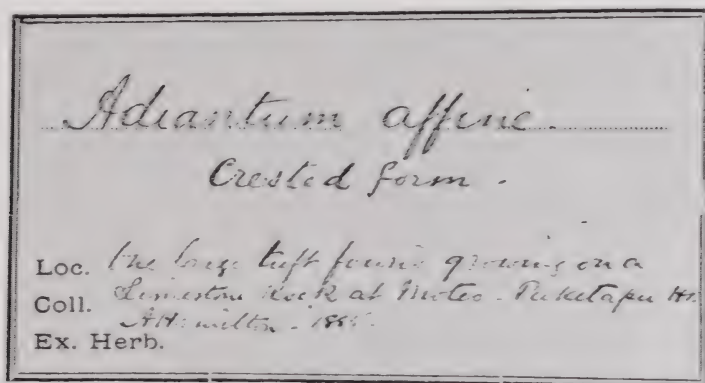 Adiantum affine.
Crested form.
Loc. One large tuft found growing on a
Coll. Limestone Rock at Moteo. Puketapu
A Hamilton. 
Ex. Herb.